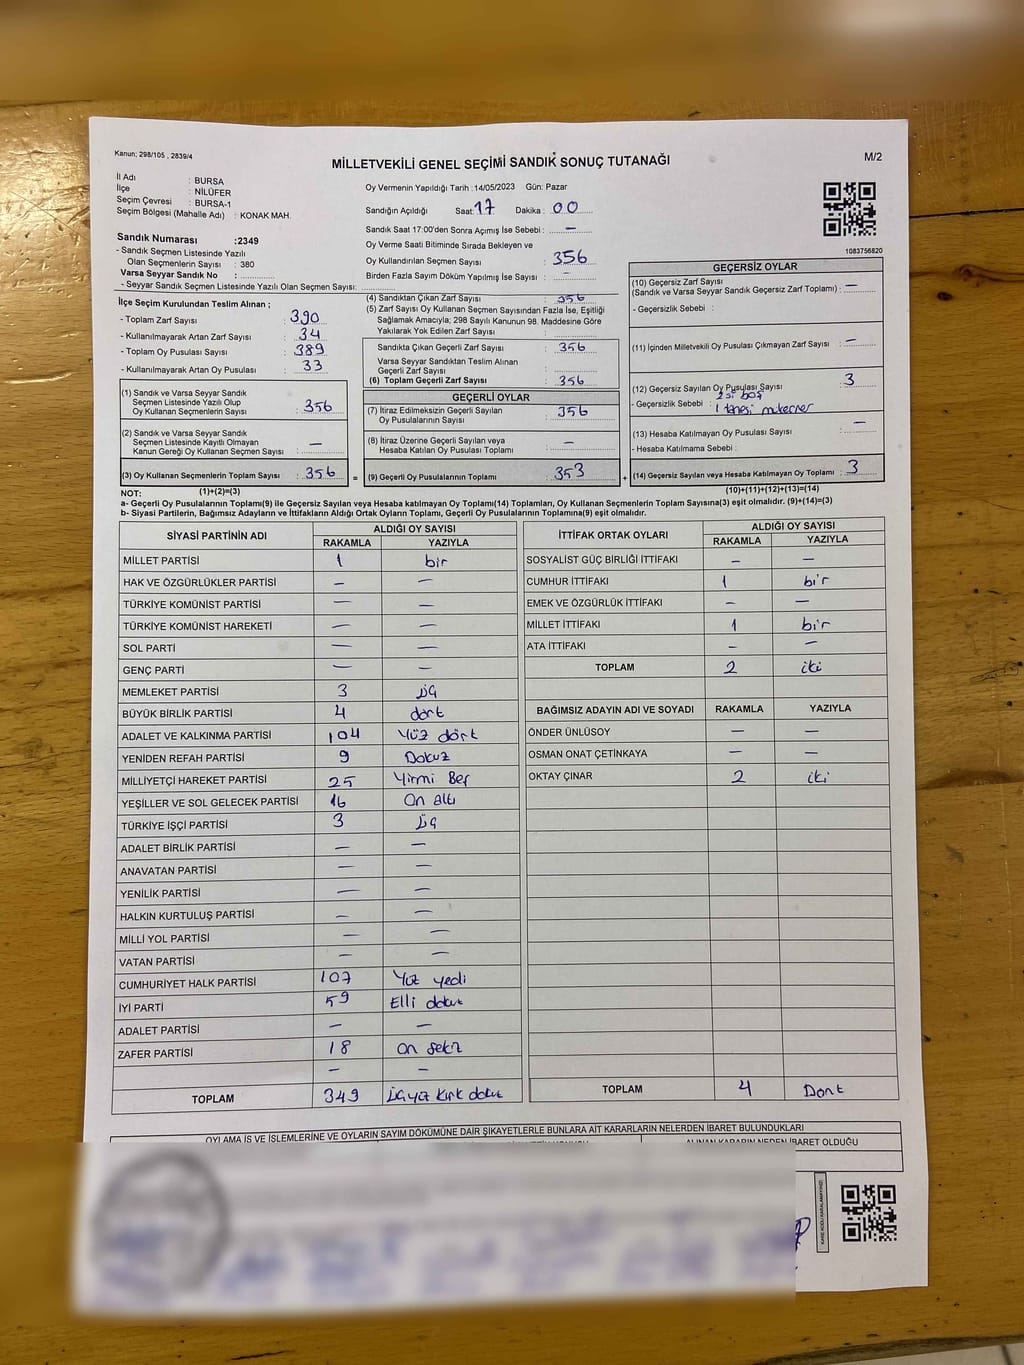 Kanun; 298/105 , 2839/4
MİLLETVEKİLİ GENEL SEÇİMİ SANDIK SONUÇ TUTANAĞI
M/2
İl Adı : BURSA
İlçe : NİLÜFER
Seçim Çevresi : BURSA-1
Seçim Bölgesi (Mahalle Adı) : KONAK MAH.
Sandık Numarası :2349
- Sandık Seçmen Listesinde Yazılı
Olan Seçmenlerin Sayısı : 380
Varsa Seyyar Sandık No :
- Seyyar Sandık Seçmen Listesinde Yazılı Olan Seçmen Sayısı:
Oy Vermenin Yapıldığı Tarih :14/05/2023 Gün: Pazar
Sandığın Açıldığı Saat: 17 Dakika : 00
Sandık Saat 17:00'den Sonra Açımış İse Sebebi : —
Oy Verme Saati Bitiminde Sırada Bekleyen ve
Oy Kullandırılan Seçmen Sayısı : 356
Birden Fazla Sayım Döküm Yapılmış İse Sayısı : —
1083756820
İlçe Seçim Kurulundan Teslim Alınan ;
- Toplam Zarf Sayısı : 390
- Kullanılmayarak Artan Zarf Sayısı : 34
- Toplam Oy Pusulası Sayısı : 389
- Kullanılmayarak Artan Oy Pusulası : 33
(1) Sandık ve Varsa Seyyar Sandık
Seçmen Listesinde Yazılı Olup
Oy Kullanan Seçmenlerin Sayısı : 356
(2) Sandık ve Varsa Seyyar Sandık
Seçmen Listesinde Kayıtlı Olmayan
Kanun Gereği Oy Kullanan Seçmen Sayısı : —
(3) Oy Kullanan Seçmenlerin Toplam Sayısı : 356
(4) Sandıktan Çıkan Zarf Sayısı : 356
(5) Zarf Sayısı Oy Kullanan Seçmen Sayısından Fazla İse, Eşitliği
Sağlamak Amacıyla; 298 Sayılı Kanunun 98. Maddesine Göre
Yakılarak Yok Edilen Zarf Sayısı :
Sandıkta Çıkan Geçerli Zarf Sayısı : 356
Varsa Seyyar Sandıktan Teslim Alınan
Geçerli Zarf Sayısı :
(6) Toplam Geçerli Zarf Sayısı : 356
GEÇERLİ OYLAR
(7) İtiraz Edilmeksizin Geçerli Sayılan
Oy Pusulalarının Sayısı : 356
(8) İtiraz Üzerine Geçerli Sayılan veya
Hesaba Katılan Oy Pusulası Toplamı : —
= (9) Geçerli Oy Pusulalarının Toplamı : 353
GEÇERSİZ OYLAR
(10) Geçersiz Zarf Sayısı
(Sandık ve Varsa Seyyar Sandık Geçersiz Zarf Toplamı) : —
- Geçersizlik Sebebi :
(11) İçinden Milletvekili Oy Pusulası Çıkmayan Zarf Sayısı : —
(12) Geçersiz Sayılan Oy Pusulası Sayısı : 3
2 si boş
- Geçersizlik Sebebi : 1 tanesi mükerrer
(13) Hesaba Katılmayan Oy Pusulası Sayısı : —
- Hesaba Katılmama Sebebi :
+ (14) Geçersiz Sayılan veya Hesaba Katılmayan Oy Toplamı : 3
NOT: (1)+(2)=(3) (10)+(11)+(12)+(13)=(14)
a- Geçerli Oy Pusulalarının Toplamı(9) ile Geçersiz Sayılan veya Hesaba katılmayan Oy Toplamı(14) Toplamları, Oy Kullanan Seçmenlerin Toplam Sayısına(3) eşit olmalıdır. (9)+(14)=(3)
b- Siyasi Partilerin, Bağımsız Adayların ve İttifakların Aldığı Ortak Oyların Toplamı, Geçerli Oy Pusulalarının Toplamına(9) eşit olmalıdır.
SİYASİ PARTİNİN ADI ALDIĞI OY SAYISI
RAKAMLA YAZIYLA
MİLLET PARTİSİ 1 bir
HAK VE ÖZGÜRLÜKLER PARTİSİ — —
TÜRKİYE KOMÜNİST PARTİSİ — —
TÜRKİYE KOMÜNİST HAREKETİ — —
SOL PARTİ — —
GENÇ PARTİ — —
MEMLEKET PARTİSİ 3 üç
BÜYÜK BİRLİK PARTİSİ 4 dört
ADALET VE KALKINMA PARTİSİ 104 Yüz dört
YENİDEN REFAH PARTİSİ 9 Dokuz
MİLLİYETÇİ HAREKET PARTİSİ 25 Yirmi Beş
YEŞİLLER VE SOL GELECEK PARTİSİ 16 On altı
TÜRKİYE İŞÇİ PARTİSİ 3 üç
ADALET BİRLİK PARTİSİ — —
ANAVATAN PARTİSİ — —
YENİLİK PARTİSİ — —
HALKIN KURTULUŞ PARTİSİ — —
MİLLİ YOL PARTİSİ — —
VATAN PARTİSİ — —
CUMHURİYET HALK PARTİSİ 107 Yüz yedi
İYİ PARTİ 59 Elli dokuz
ADALET PARTİSİ — —
ZAFER PARTİSİ 18 on sekiz
— —
TOPLAM 349 üçyüz kırk dokuz
İTTİFAK ORTAK OYLARI ALDIĞI OY SAYISI
RAKAMLA YAZIYLA
SOSYALİST GÜÇ BİRLİĞİ İTTİFAKI — —
CUMHUR İTTİFAKI 1 bir
EMEK VE ÖZGÜRLÜK İTTİFAKI — —
MİLLET İTTİFAKI 1 bir
ATA İTTİFAKI — —
TOPLAM 2 iki
BAĞIMSIZ ADAYIN ADI VE SOYADI RAKAMLA YAZIYLA
ÖNDER ÜNLÜSOY — —
OSMAN ONAT ÇETİNKAYA — —
OKTAY ÇINAR 2 iki
TOPLAM 4 Dört
OYLAMA İŞ VE İŞLEMLERİNE VE OYLARIN SAYIM DÖKÜMÜNE DAİR ŞİKAYETLERLE BUNLARA AİT KARARLARIN NELERDEN İBARET BULUNDUKLARI
ALINAN KARARIN NEDEN İBARET OLDUĞU